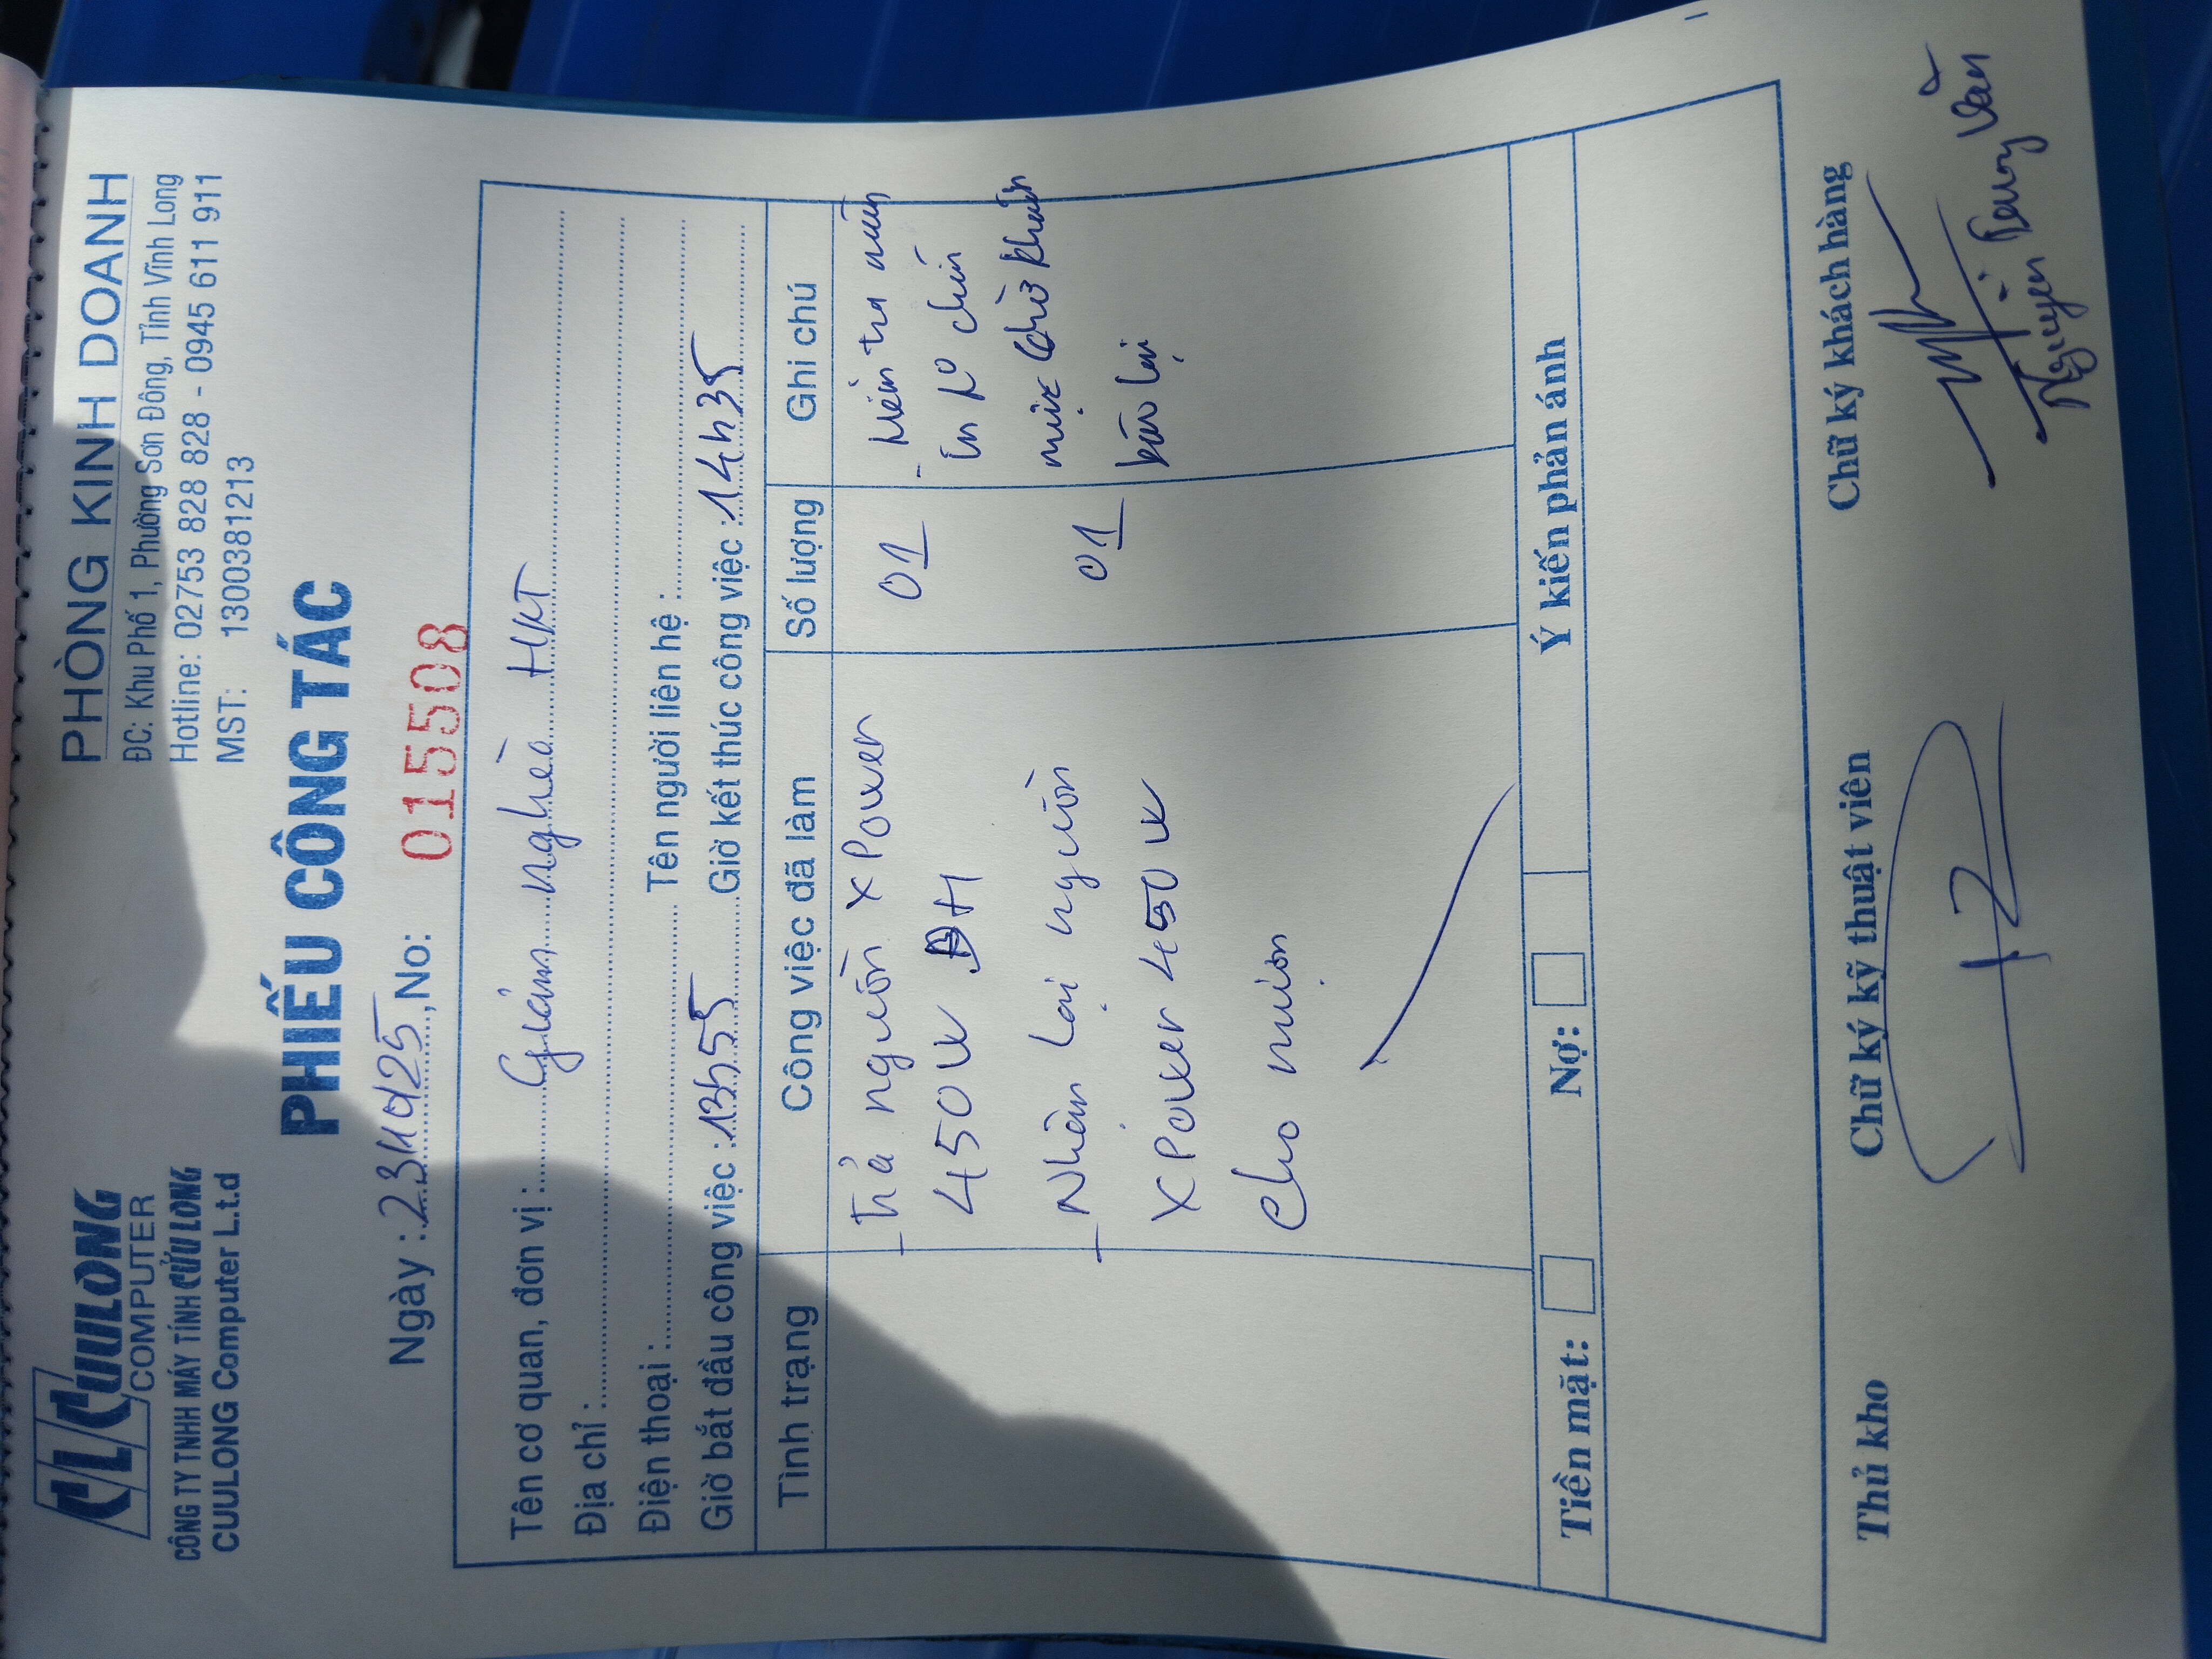 CUULONG
COMPUTER
CÔNG TY TNHH MÁY TÍNH CỬU LONG
CUULONG Computer L.t.d
PHÒNG KINH DOANH
ĐC: Khu Phố 1, Phường Sơn Đông, Tỉnh Vĩnh Long
Hotline: 02753 828 828 - 0945 611 911
MST: 1300381213
PHIẾU CÔNG TÁC
Ngày : No: 015508
Tên cơ quan, đơn vị : Giảm nghèo
Địa chỉ :
Điện thoại : Tên người liên hệ :
Giờ bắt đầu công việc : 13h55 Giờ kết thúc công việc : 14h35
Tình trạng Công việc đã làm Số lượng Ghi chú
- Trả nguồn XPower 01 - Kiểm tra
450W BH in
- Nhận lại nguồn 01 mực
XPower 450W báo lại
cho mượn
Tiền mặt: Nợ: Ý kiến phản ánh
Thủ kho Chữ ký kỹ thuật viên Chữ ký khách hàng
Nguyen